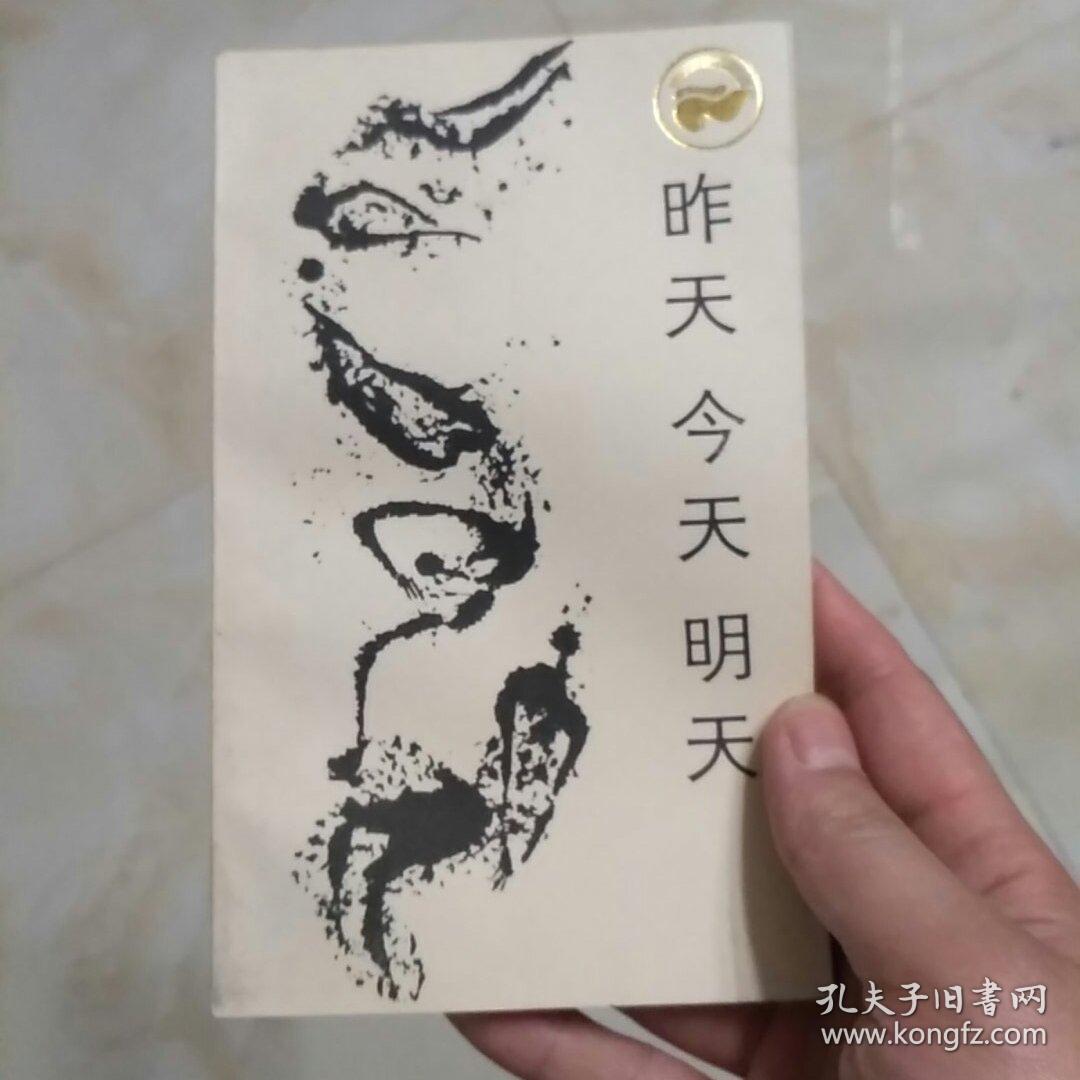 昨天今天明天
孔夫子旧書网
www.kongfz.com